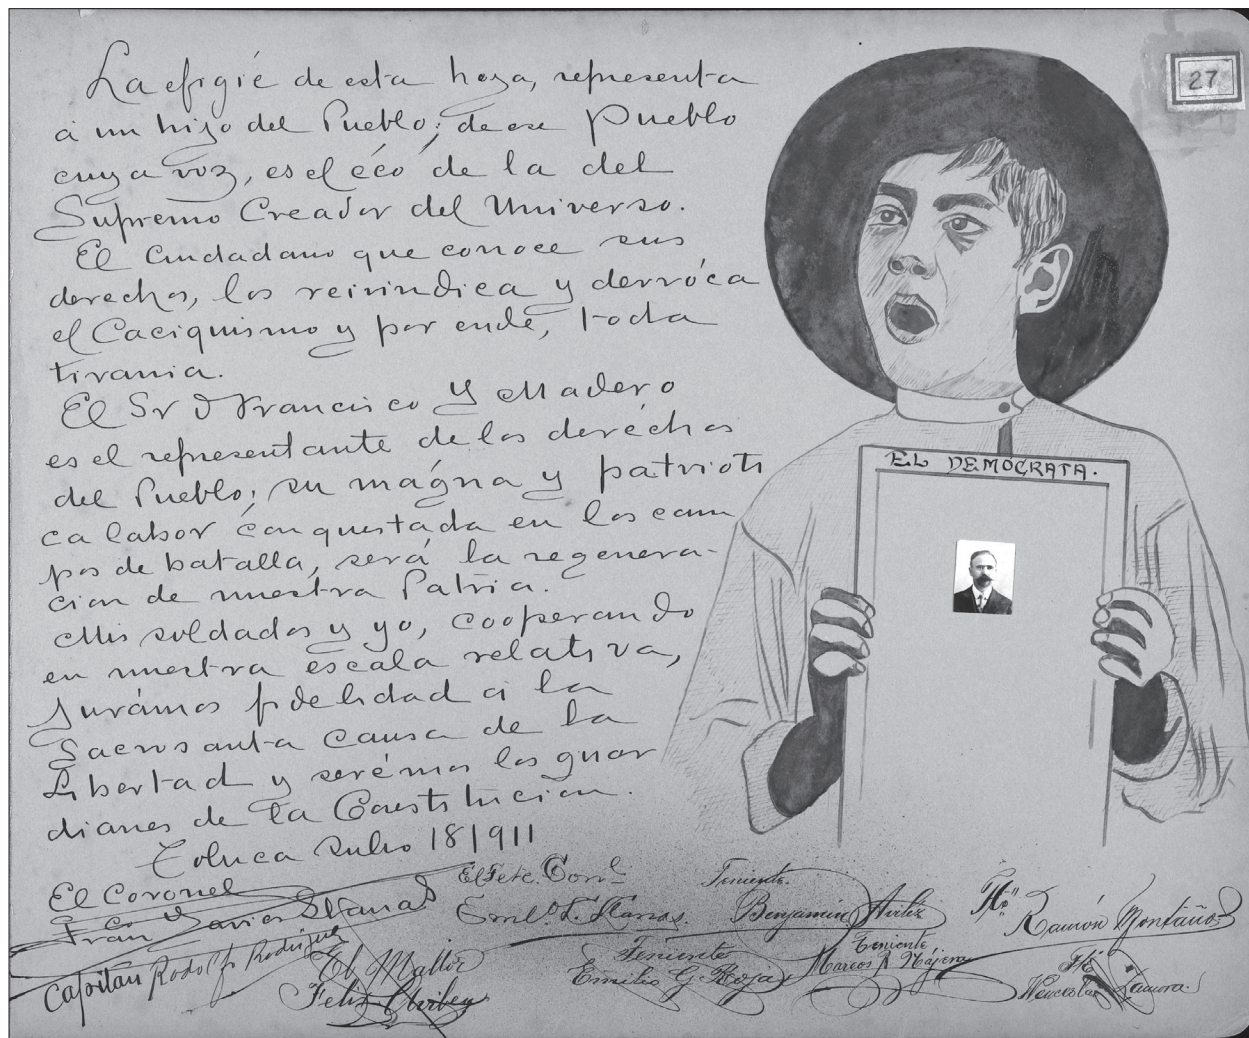 27
La efigie de esta hoja, representa
á un hijo del Pueblo; de ese Pueblo
cuya voz, es el éco de la del
Supremo Creador del Universo.
El Ciudadano que conoce sus
derechos, los reivindica y derróca
el Caciquismo y por ende, toda
tirania.
El Sr D Francisco Y Madero
es el representante de los deréchos
del Pueblo; su mágna y patrioti
ca labor conquistada en los cam
pos de batalla, será la regenera-
cion de nuestra Patria.
Mis soldados y yo, cooperando
en nuestra escala relativa,
Jurámos fidelidad á la
Sacrosanta causa de la
Libertad y serémos los guar
dianes de la Constitucion.
Toluca Julio 18/911
EL DEMOCRATA.
El Coronel
Javier
Capitan Rodolfo Rodriguez
El
Felix
Teniente
Emilio G. Rojas
Teniente.
Benjamin
Teniente
Marcos Nájera
Ramón Montaño
Zamora.